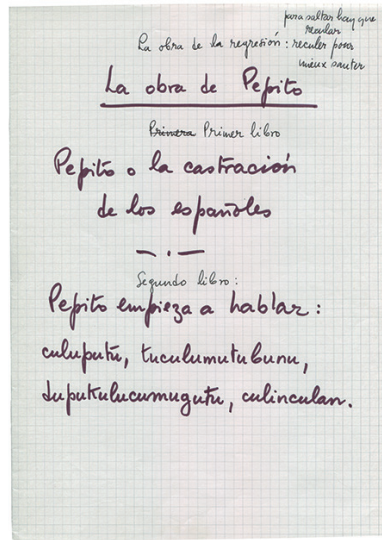 para saltar hay que
recular
La obra de la regresión: reculer pour
mieux sauter
La obra de Pepito
Primera Primer libro
Pepito o la castración
de los españoles
Segundo libro:
Pepito empieza a hablar:
culuputu, tuculumutubunu,
duputulucumugutu, culinculan.